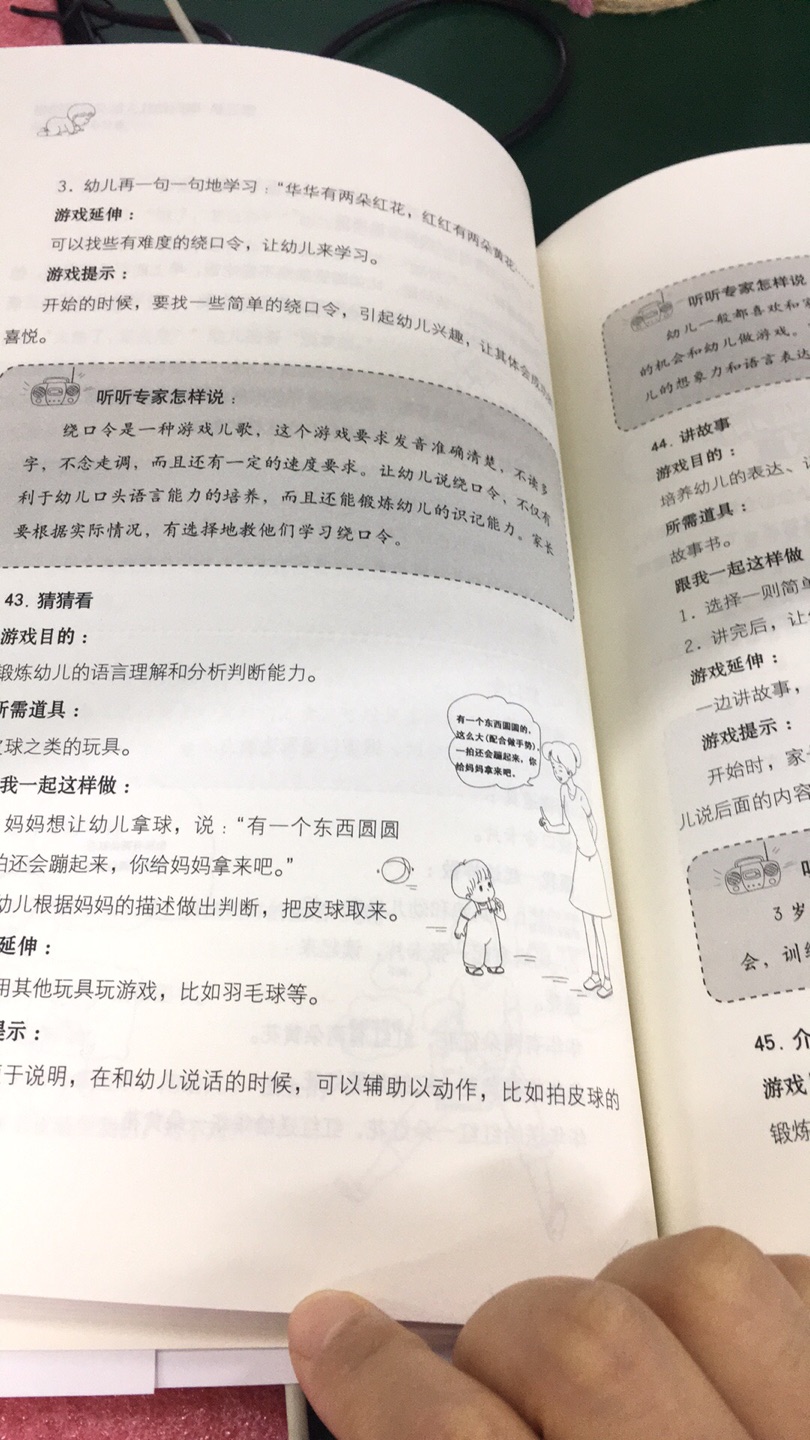 3. 幼儿再一句一句地学习:“华华有两朵红花,红红有两朵黄花……”
游戏延伸:
可以找些有难度的绕口令,让幼儿来学习。
游戏提示:
开始的时候,要找一些简单的绕口令,引起幼儿兴趣,让其体会成功的
喜悦。
听听专家怎样说:
绕口令是一种游戏儿歌,这个游戏要求发音准确清楚,不读多
字,不念走调,而且还有一定的速度要求。让幼儿说绕口令,不仅有
利于幼儿口头语言能力的培养,而且还能锻炼幼儿的识记能力。家长
要根据实际情况,有选择地教他们学习绕口令。
43. 猜猜看
游戏目的:
锻炼幼儿的语言理解和分析判断能力。
所需道具:
皮球之类的玩具。
我一起这样做:
妈妈想让幼儿拿球,说:“有一个东西圆圆
拍还会蹦起来,你给妈妈拿来吧。”
幼儿根据妈妈的描述做出判断,把皮球取来。
延伸:
用其他玩具玩游戏,比如羽毛球等。
提示:
于说明,在和幼儿说话的时候,可以辅助以动作,比如拍皮球的
有一个东西圆圆的,
这么大(配合做手势),
一拍还会蹦起来,你
给妈妈拿来吧。
听听专家怎样说
幼儿一般都喜欢和家
的机会和幼儿做游戏。
儿的想象力和语言表达
44. 讲故事
游戏目的:
培养幼儿的表达、
所需道具:
故事书。
跟我一起这样做
1. 选择一则简单
2. 讲完后,让
游戏延伸:
一边讲故事,
游戏提示:
开始时,家
儿说后面的内容
3 岁
会,训练
45. 介
游戏
锻炼